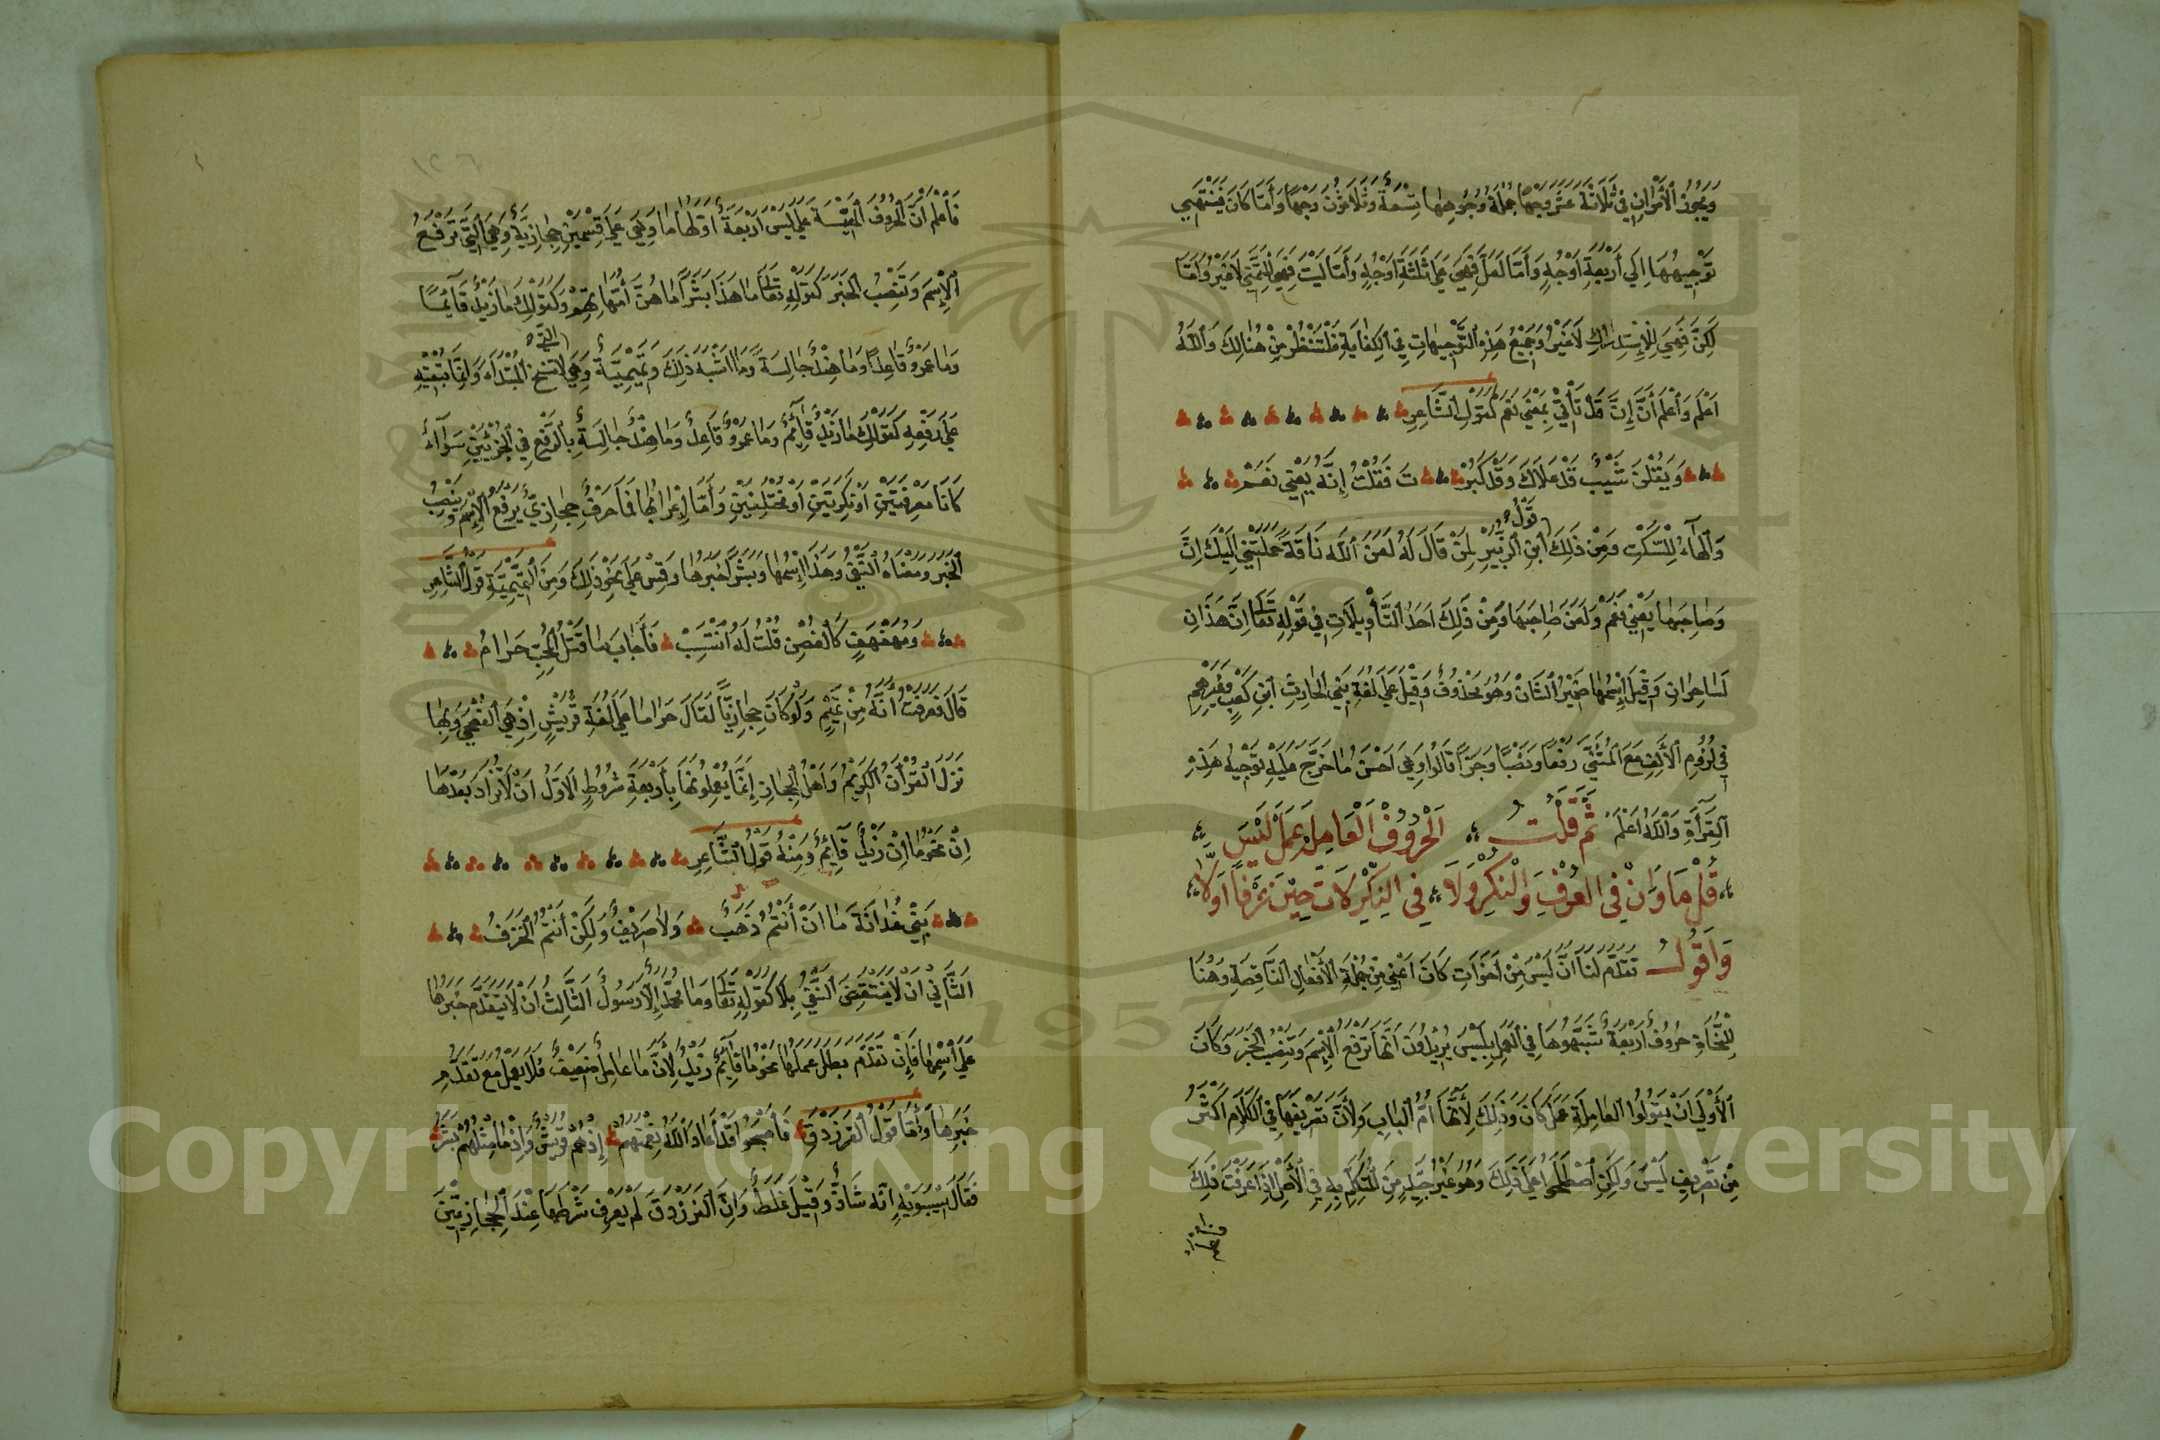 ويجوز الأمران في ثلاثة عشر وجها جملة وجوهها تسعة وثلاثون وجها وأما كان فينتهي
توجيهها إلى أربعة أوجه وأما لعل فهي على ثلثة أوجه وأما ليت فهي للتمني لا غير وأما
لكن فهي للاستدراك لا غير وجميع هذه التوجيهات في الكفاية فلتنظر من هنالك والله
اعلم واعلم أن إن قد تأتي بمعنى نعم كقول الشاعر
ويقلن شيب قد علاك وقد كبر ت فقلت إنه يعني نعم
قول
والهاء للسكت ومن ذلك ابن الزبير لمن قال له لعن الله ناقة حملتني اليك ان
وصاحبها يعني نعم ولعن صاحبها ومن ذلك احد التأويلات في قوله تعالى ان هذان
لساحران وقيل إسمها ضمير الشان وهو محذوف وقيل على لغة بني الحارث ابن كعب وغيرهم
في لزوم الألف مع المثنى رفعا ونصبا وجرا قالوا وهي احسن ما خرج عليه توجيه هذه
القرأة والله اعلم ثم قلت الحروف العاملة عمل ليس
قل ما وان في العرف والنكر ولا في النكر لات حين عرفا اولا
واقول تقدم لنا ان ليس من اخوات كان اعني من جملة الأفعال الناقصة وهنا
للنحاة حروف أربعة شبهوها في العمل بليس يريدون انها ترفع الإسم وتنصب الخبر وكان
الأولى ان يقولوا العاملة عمل كان وذلك لأنها أم الباب ولأن تصريفها في الكلام أكثر
من تصريف ليس ولكن اصطلحوا على ذلك وهو غير جيد من المتكلم به في الأصل إذا عرفت ذلك
فاعلم
١٢٦
فاعلم ان الحروف المقيسة على ليس اربعة اولها ما وهي على قسمين حجازية وهي التي ترفع
الإسم وتنصب الخبر كقوله تعالى ما هذا بشرا ما هن أمهاتهم وكقولك ما زيد قائما
وما عمرو قاعدا وما هند جالسة وما اشبه ذلك وتميمية وهي التي لا تنسخ المبتداء وانما تبقيه
على رفعه كقولك ما زيد قائم وما عمرو قاعد وما هند جالسة بالرفع في الجزئين سواء
كانا معرفتين او نكرتين او مختلفين وأما إعرابها فما حرف حجازي يرفع الإسم وينصب
الخبر ومعناه النفي وهذا إسمها وبشرا خبرها وقس على نحو ذلك ومن التميمية قول الشاعر
ومهفهف كالغصن قلت له انتسب فأجاب ما قتل المحب حرام
قال فعرفت أنه من تميم ولو كان حجازيا لقال حراما على لغة قريش إذ هي الفصحى وبها
نزل القرأن الكريم وأهل الحجاز إنما يعملونها بأربعة شروط الأول ان لا تزاد بعدها
إن نحو ما إن زيد قائم ومنه قول الشاعر
بني غدانة ما ان أنتم ذهب ولا صريف ولكن أنتم الخزف
الثاني ان لا ينتقض النفي بإلا كقوله تعالى وما محمد إلا رسول الثالث ان لا يتقدم خبرها
على اسمها فإن تقدم بطل عملها نحو ما قائم زيد لأن ما عامل ضعيف فلا يعمل مع تقدم
خبرها وأما قول الفرزدق فأصبحوا قد أعاد الله نعمتهم إذ هم قريش وإذ ما مثلهم بشر
فقال سيبويه إنه شاذ وقيل غلط وان الفرزدق لم يعرف شرطها عند الحجازيين